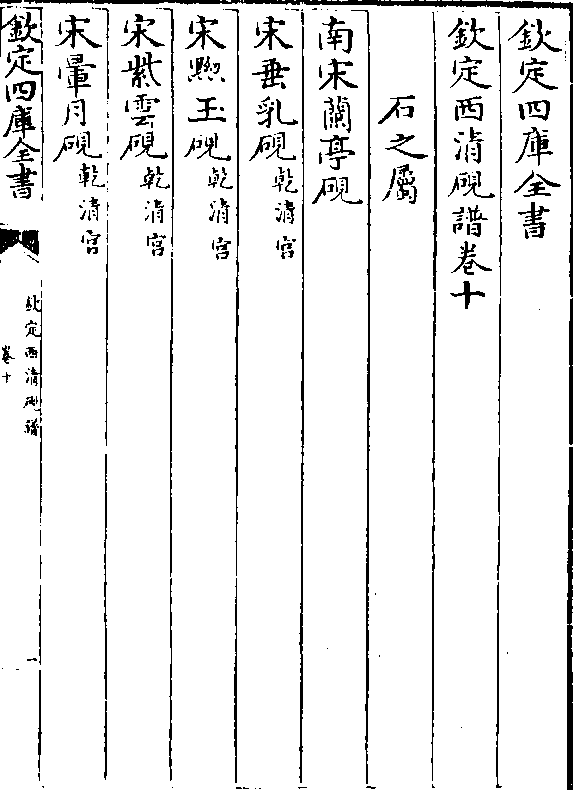 欽定四庫全書
欽定西清硯譜卷十
石之屬
南宋蘭亭硯
宋垂乳硯乾清宮
宋黟玉硯乾清宮
宋紫雲硯乾清宮
宋暈月硯乾清宮
欽定四庫全書
欽定西清硯譜
卷十
一